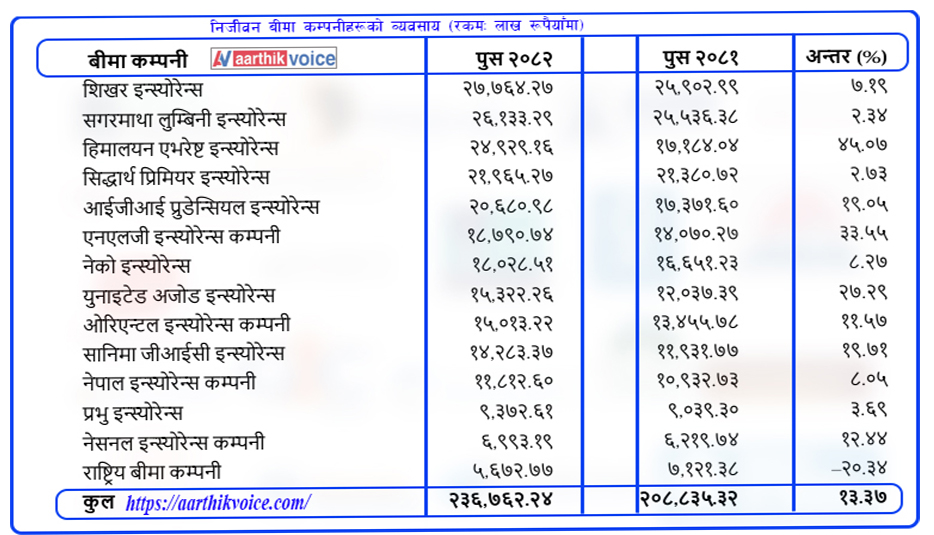 निर्जीवन बीमा कम्पनीहरूको व्यवसाय (रकमः लाख रूपैयाँमा)
बीमा कम्पनी aarthikvoice पुस २०८२ पुस २०८१ अन्तर (%)
शिखर इन्स्योरेन्स २७,७६४.२७ २५,९०२.९९ ७.१९
सगरमाथा लुम्बिनी इन्स्योरेन्स २६,१३३.२९ २५,५३६.३८ २.३४
हिमालयन एभरेष्ट इन्स्योरेन्स २४,९२९.१६ १७,१८४.०४ ४५.०७
सिद्धार्थ प्रिमियर इन्स्योरेन्स २१,९६५.२७ २१,३८०.७२ २.७३
आईजीआई प्रुडेन्सियल इन्स्योरेन्स २०,६८०.९८ १७,३७१.६० १९.०५
एनएलजी इन्स्योरेन्स कम्पनी १८,७९०.७४ १४,०७०.२७ ३३.५५
नेको इन्स्योरेन्स १८,०२८.५१ १६,६५१.२३ ८.२७
युनाइटेड अजोड इन्स्योरेन्स १५,३२२.२६ १२,०३७.३९ २७.२९
ओरिएन्टल इन्स्योरेन्स कम्पनी १५,०१३.२२ १३,४५५.७८ ११.५७
सानिमा जीआईसी इन्स्योरेन्स १४,२८३.३७ ११,९३१.७७ १९.७१
नेपाल इन्स्योरेन्स कम्पनी ११,८१२.६० १०,९३२.७३ ८.०५
प्रभु इन्स्योरेन्स ९,३७२.६१ ९,०३९.३० ३.६९
नेसनल इन्स्योरेन्स कम्पनी ६,९९३.१९ ६,२१९.७४ १२.४४
राष्ट्रिय बीमा कम्पनी ५,६७२.७७ ७,१२१.३८ –२०.३४
कुल https://aarthikvoice.com/ २३६,७६२.२४ २०८,८३५.३२ १३.३७